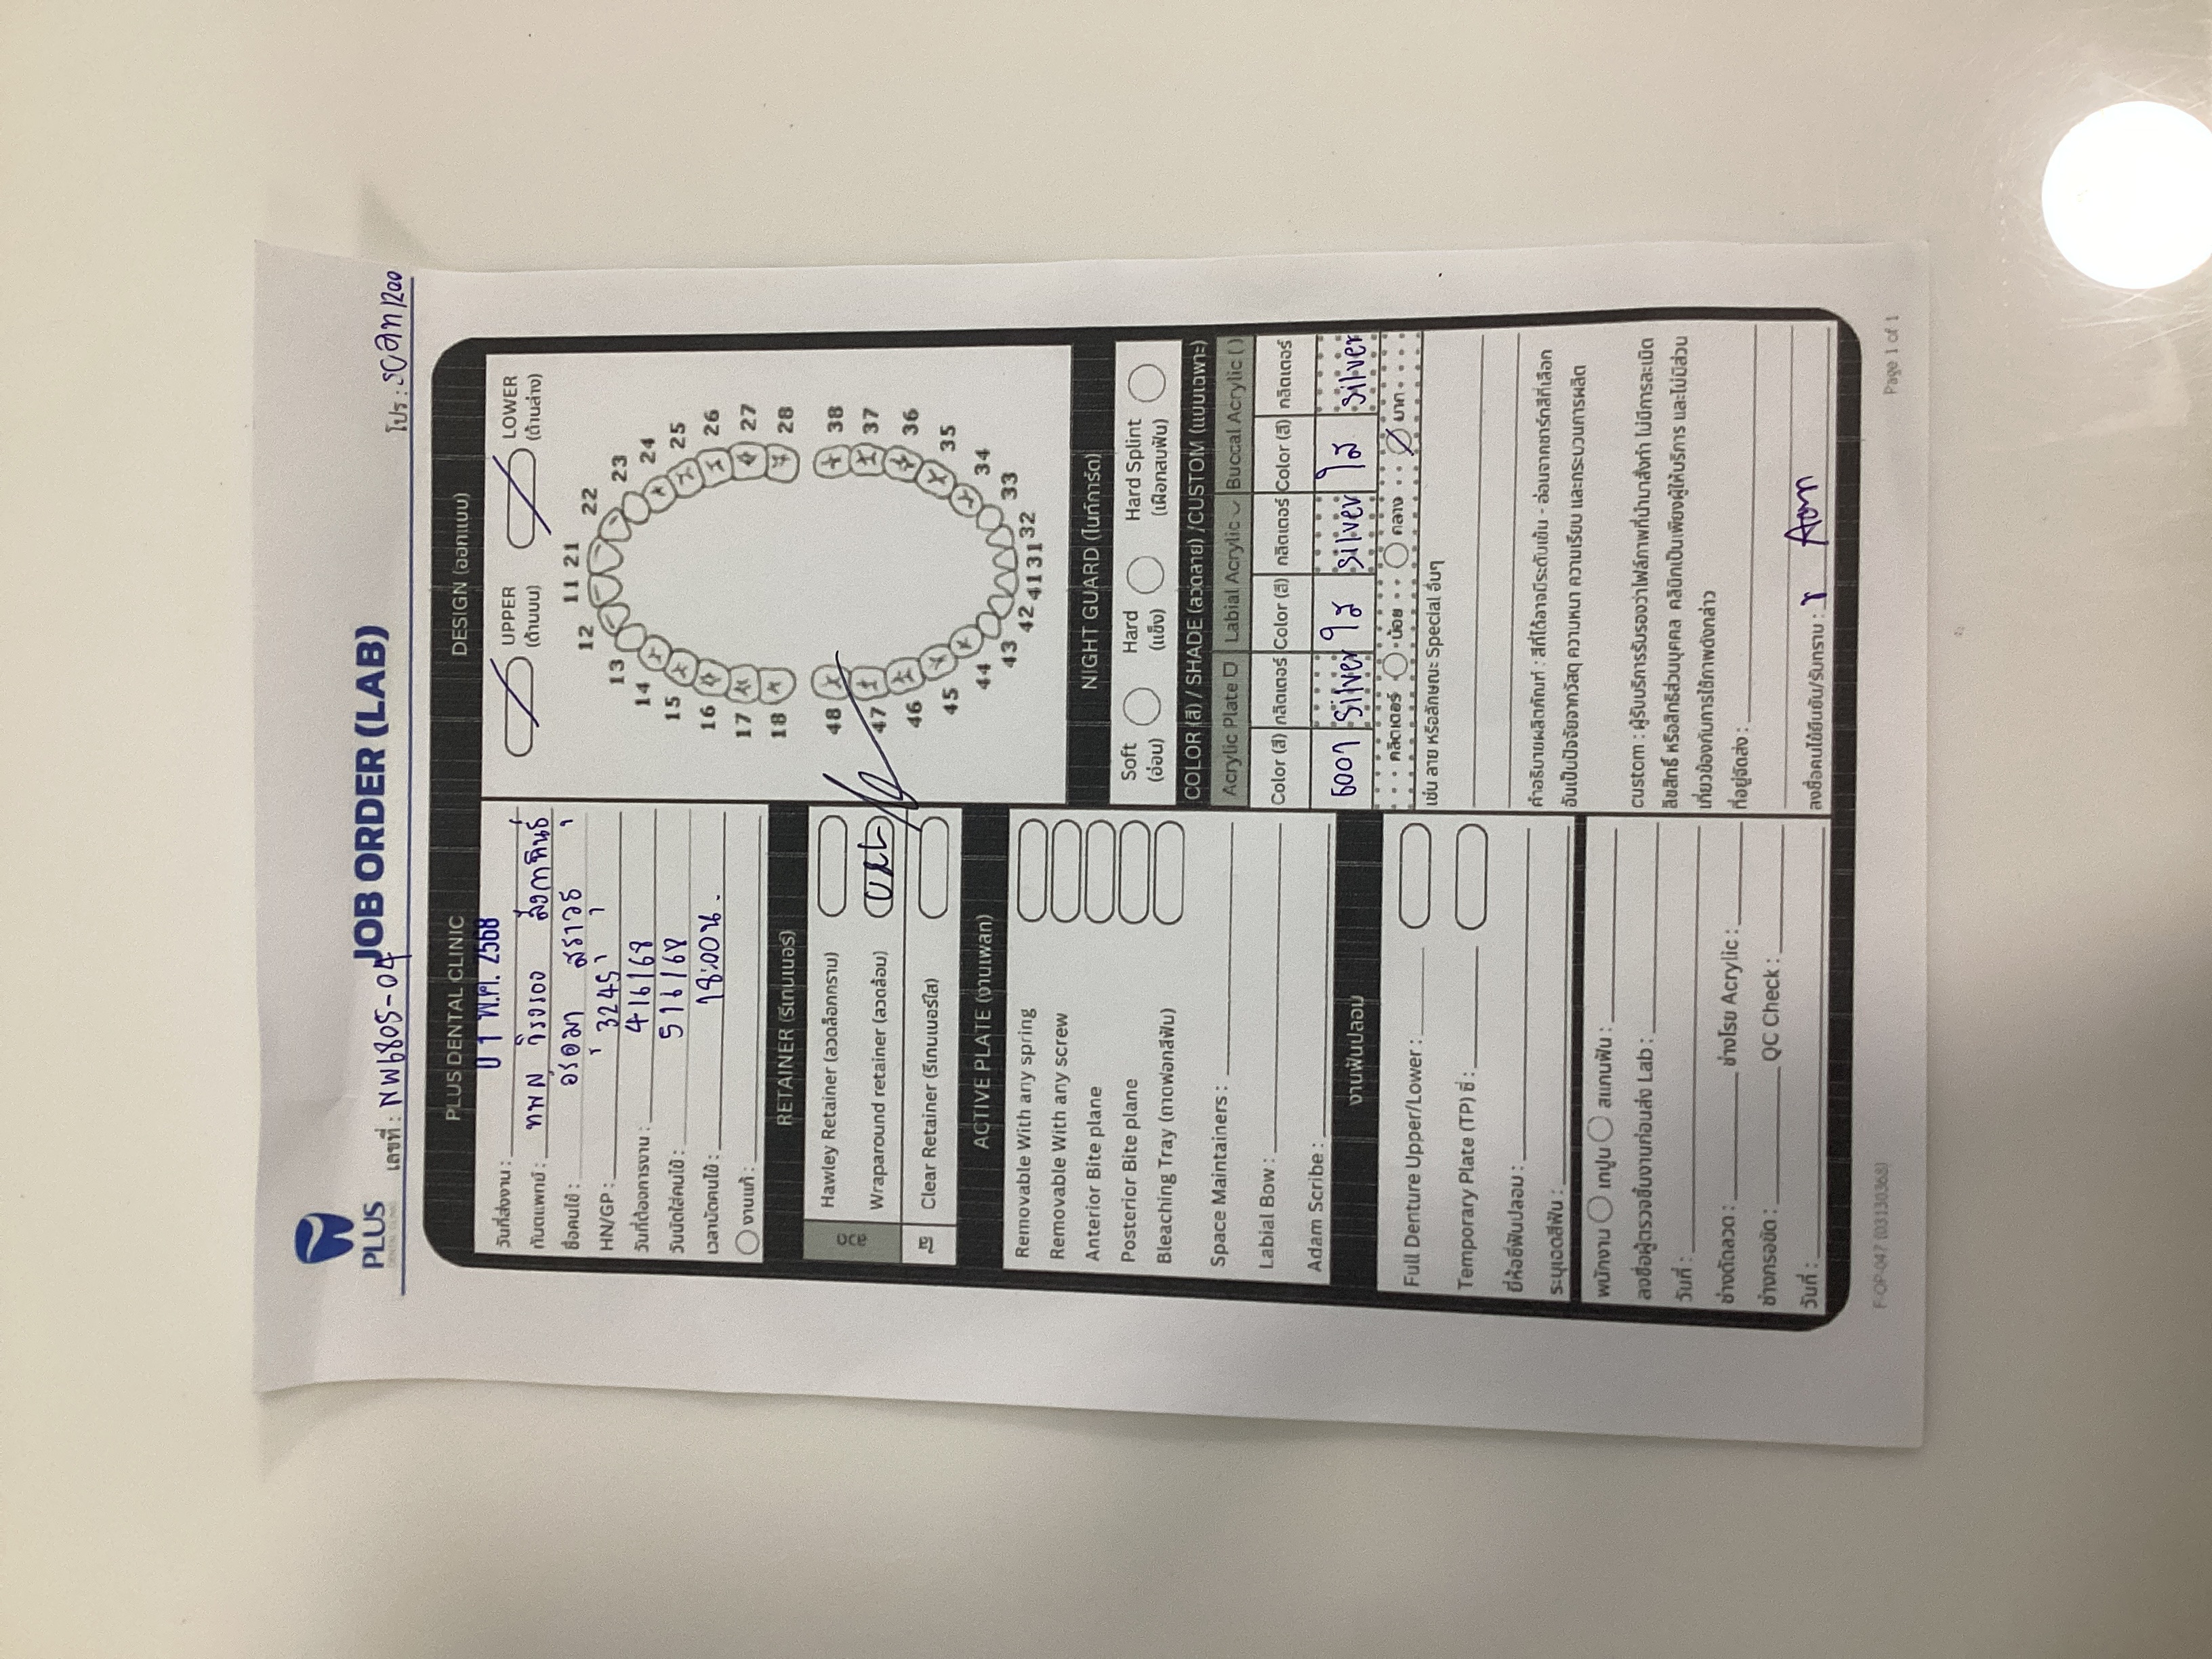 PLUS
DENTAL CLINIC
JOB ORDER (LAB)
เลขที่ : NW6805-04
โปร : scan 1200
PLUS DENTAL CLINIC
วันที่ส่งงาน : 01 พ.ค. 2568
ทันตแพทย์ : ทพญ
ชื่อคนไข้ : อรอุมา สุราวุธ
HN/GP : 3245
วันที่ต้องการงาน : 4/6/68
วันนัดใส่คนไข้ : 5/6/68
เวลานัดคนไข้ : 18:00น.
งานแก้ :
RETAINER (รีเทนเนอร์)
ลวด
Hawley Retainer (ลวดล็อกกราม)
Wraparound retainer (ลวดล้อม) U&L
ใส
Clear Retainer (รีเทนเนอร์ใส)
ACTIVE PLATE (งานเพลท)
Removable With any spring
Removable With any screw
Anterior Bite plane
Posterior Bite plane
Bleaching Tray (ถาดฟอกสีฟัน)
Space Maintainers :
Labial Bow :
Adam Scribe :
งานฟันปลอม
Full Denture Upper/Lower :
Temporary Plate (TP) ซี่ :
ยี่ห้อซี่ฟันปลอม :
ระบุเฉดสีฟัน :
พนักงาน เทปูน สแกนฟัน :
ลงชื่อผู้ตรวจชิ้นงานก่อนส่ง Lab :
วันที่ :
ช่างดัดลวด : ช่างโรย Acrylic :
ช่างกรอขัด : QC Check :
วันที่ :
DESIGN (ออกแบบ)
UPPER
(ด้านบน)
LOWER
(ด้านล่าง)
11 21
12 22
13 23
14 24
15 25
16 26
17 27
18 28
48 38
47 37
46 36
45 35
44 34
43 33
42 41 31 32
NIGHT GUARD (ไนท์การ์ด)
Soft
(อ่อน)
Hard
(แข็ง)
Hard Splint
(เฝือกสบฟัน)
COLOR (สี) / SHADE (ลวดลาย) /CUSTOM (แบบเฉพาะ)
Acrylic Plate Labial Acrylic Buccal Acrylic ( )
Color (สี) กลิตเตอร์ Color (สี) กลิตเตอร์ Color (สี) กลิตเตอร์
6007 Silver ใส Silver ใส Silver
กลิตเตอร์ น้อย กลาง มาก
เช่น ลาย หรือลักษณะ Special อื่นๆ
คำอธิบายผลิตภัณฑ์ : สีที่ได้อาจมีระดับเข้ม - อ่อนจากชาร์ทสีที่เลือก
อันเป็นปัจจัยจากวัสดุ ความหนา ความเรียบ และกระบวนการผลิต
custom : ผู้รับบริการรับรองว่าไฟล์ภาพที่นำมาสั่งทำ ไม่มีการละเมิด
ลิขสิทธิ์ หรือสิทธิส่วนบุคคล คลินิกเป็นเพียงผู้ให้บริการ และไม่มีส่วน
เกี่ยวข้องกับการใช้ภาพดังกล่าว
ที่อยู่จัดส่ง :
ลงชื่อคนไข้ยืนยัน/รับทราบ : Aom
F-OP-047 (03130368)
Page 1 of 1